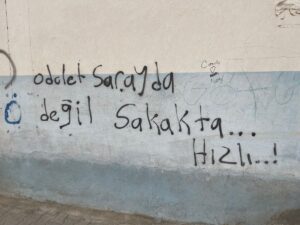 odalet Sarayda
değil Sakakta...
Hızlı..!